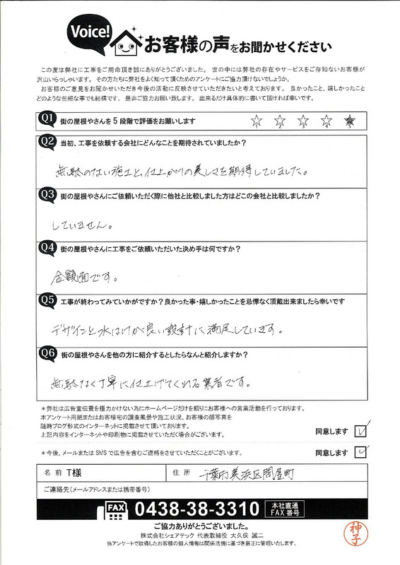 Voice!
お客様の声をお聞かせください
この度は弊社に工事をご用命頂き誠にありがとうございました。世の中には弊社の存在やサービスをご存知ないお客様が
沢山いらっしゃいます。その方たちに弊社をよく知って頂くためのアンケートにご協力頂けないでしょうか。
お客様のご意見をお聞かせいただき今後の活動に反映させていただきたいと考えております。良かったこと、嬉しかったこと
どのような些細な事でも結構です。是非ご協力お願い致します。出来るだけ具体的に書いて頂ければ幸いです。
Q1 街の屋根やさんを5段階で評価をお願いします ☆ ☆ ☆ ☆ ★
Q2 当初、工事を依頼する会社にどんなことを期待されていましたか?
無駄のない施工と、仕上がりの美しさを期待していました。
Q3 街の屋根やさんにご依頼いただく際に他社と比較しました方はどこの会社と比較しましたか?
していません。
Q4 街の屋根やさんに工事をご依頼いただいた決め手は何ですか?
金額面です。
Q5 工事が終わってみていかがですか?良かった事・嬉しかったことを忌憚なく頂戴出来ましたら幸いです
デザインと水はけが良い設計に満足しています。
Q6 街の屋根やさんを他の方に紹介するとしたらなんと紹介しますか?
無駄なく丁寧に仕上げてくれる業者です。
*弊社は広告宣伝費を極力かけない為にホームページだけを頼りにお客様への営業活動を行っております。
本アンケート用紙またはお客様宅の調査風景や施工状況、お客様の顔写真を
随時ブログ形式のインターネットに掲載させて頂いております。
上記内容をインターネットや印刷物に掲載させていただく場合がございます。 同意します ✓
*今後、メールまたはSMSで広告を含むご連絡をさせていただくことがございます。 同意します ✓
名前 T様 住所 千葉市美浜区問屋町
ご連絡先(メールアドレスまたは携帯番号)
FAX 0438-38-3310 本社直通 FAX番号
ご協力ありがとうございました。
株式会社シェアテック 代表取締役 大久保 誠二
当アンケートで取得したお客様の個人情報は関係法規に基づき厳正に管理いたします。
神子